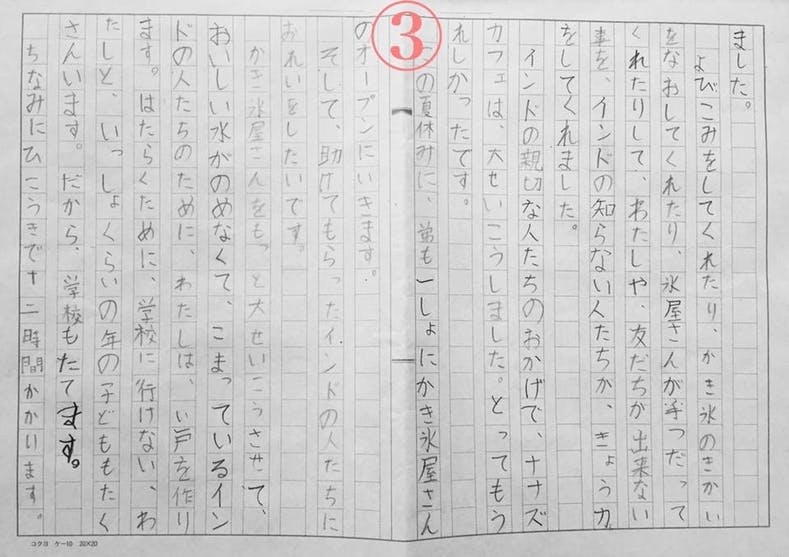 ③
ました。
よびこみをしてくれたり、かき氷のきかい
をなおしてくれたり、氷屋さんが手つだって
くれたりして、わたしや、友だちが出来ない
事を、インドの知らない人たちが、きょう力
をしてくれました。
インドの親切な人たちのおかげで、ナナズ
カフェは、大せいこうしました。とってもう
れしかったです。
この夏休みに、弟も一しょにかき氷屋さん
のオープンにいきます。
そして、助けてもらったインドの人たちに
おれいをしたいです。
かき氷屋さんをもっと大せいこうさせて、
おいしい水がのめなくて、こまっているイン
ドの人たちのために、わたしは、い戸を作り
ます。はたらくために、学校に行けない、わ
たしと、いっしょくらいの年の子どももたく
さんいます。だから、学校もたてます。
ちなみにひこうきで十二時間かかります。
コクヨ ケー10 20×20